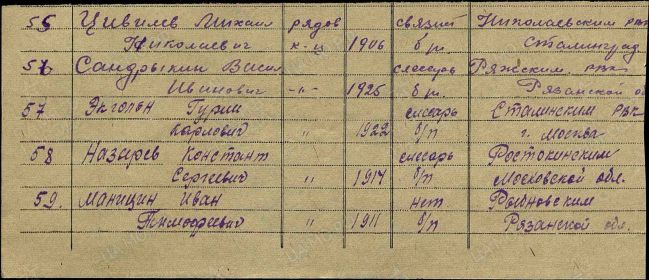 55 Цивилев Михаил рядов связист Николаевским РВК
Николаевич к-ц 1906 б/п Сталинград
56 Сандрыкин Васил слесарь Ряжским РВК
Иванович -"- 1925 б/п Рязанской о
57 Экгольн Гурий слесарь Сталинским РВК
Карлович " 1922 б/п г. Москва
58 Назарев Констант слесарь Ростокинским
Сергеевич " 1914 б/п Московской обл.
59. Маницин Иван нет Рыбновским
Тимофеевич " 1911 б/п Рязанской обл.